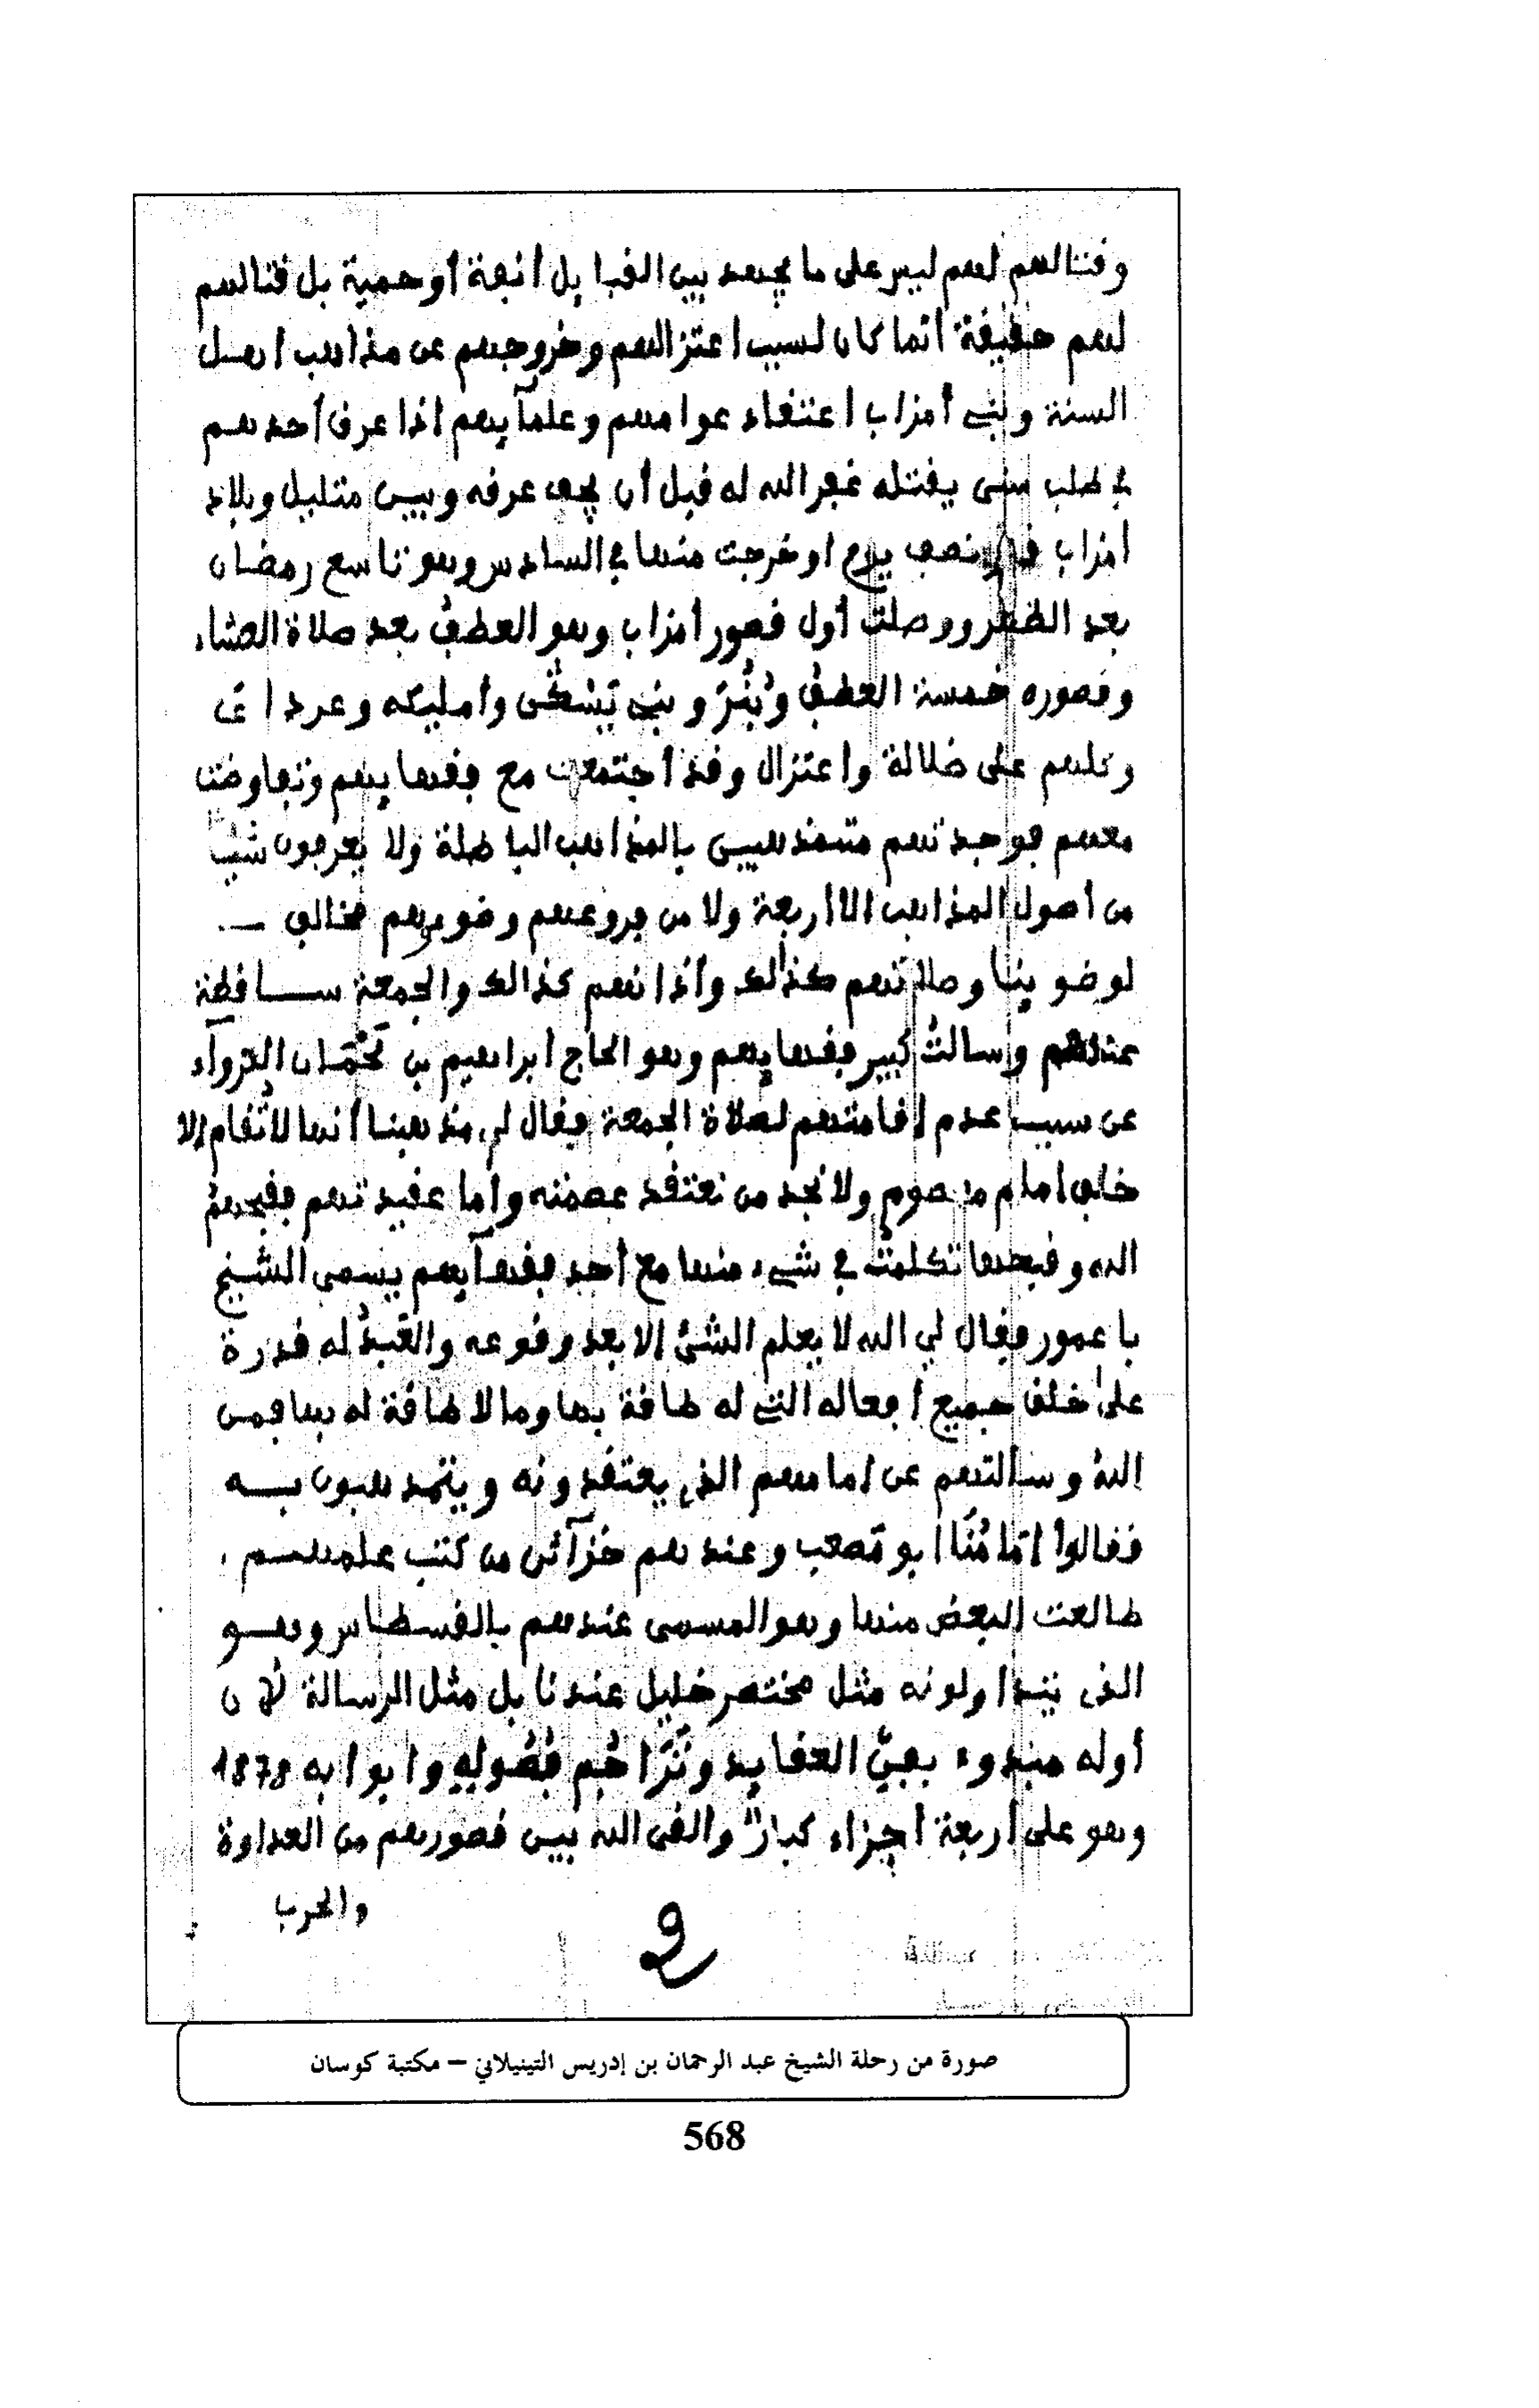 وقتالهم لهم ليس على ما يعهد بين القبايل أنفة أو حمية بل قتالهم
لهم حقيقة انما كان لسبب اعتزالهم وخروجهم عن مذاهب اهل
السنة وبني أمزاب اعتقاد عوامهم وعلمآيهم اذا عرق أحدهم
في طلب سنى يقتله غفر الله له قبل أن يجف عرقه وبين متليل وبلاد
امزاب نصف يوم او خرجت منها في السادس وهو تاسع رمضان
بعد الظهر ووصلت أول قصور أمزاب وهو العطف بعد صلاة العشاء
وقصوره خمسة العطف وبُنُرَ وبني يَسْڨَن وامليكه وغرداى
وكلهم على ضلالة واعتزال وقد اجتمعت مع فقهايهم وتفاوضت
معهم فوجدتهم متمذهبين بالمذاهب الباطلة ولا يعرفون شيا
من أصول المذاهب الاأربعة ولا من فروعهم وضويهم مخالف
لوضوينا وصلاتهم كذالك وأذانهم كذالك والجمعة ساقطة
عندهم وسالت كبير فقهايهم وهو الحاج ابراهيم بن
عن سبب عدم اقامتهم لصلاة الجمعة فقال لي مذهبنا أنها لاتقام إلا
خلف امام معصوم ولا نجد من نعتقد عصمته واما عقيدتهم فقبحهم
الله وقبحها تكلمت في شيء منها مع أحد فقهآيهم يسمى الشيخ
با عمور فقال لي الله لا يعلم الشئ إلا بعد وقوعه والعَبدُ له قدرة
على خلق جميع افعاله التي له طاقة بها وما لا طاقة له بها فمن
اللهُ وسالتهم عن امامهم الذي يعتقدونه ويتمذهبون به
فقالوا امَامُنَا ابو مصعب وعندهم خزآئن من كتب علمهم
طالعت البعض منها وهو المسمى عندهم بالقسطاس وهو
الذى يتداولونه مثل مختصر خليل عندنا بل مثل الرسالة لأن
أوله مبدوء بفنّ العقايد وتَرَاجُم فُصُولِهِ وابوابه 1878
وهو على أربعة أجزاء كبار والقى الله بين قصورهم من العداوة
والحرب
و
صورة من رحلة الشيخ عبد الرحمان بن إدريس التينيلاني – مكتبة كوسان
568